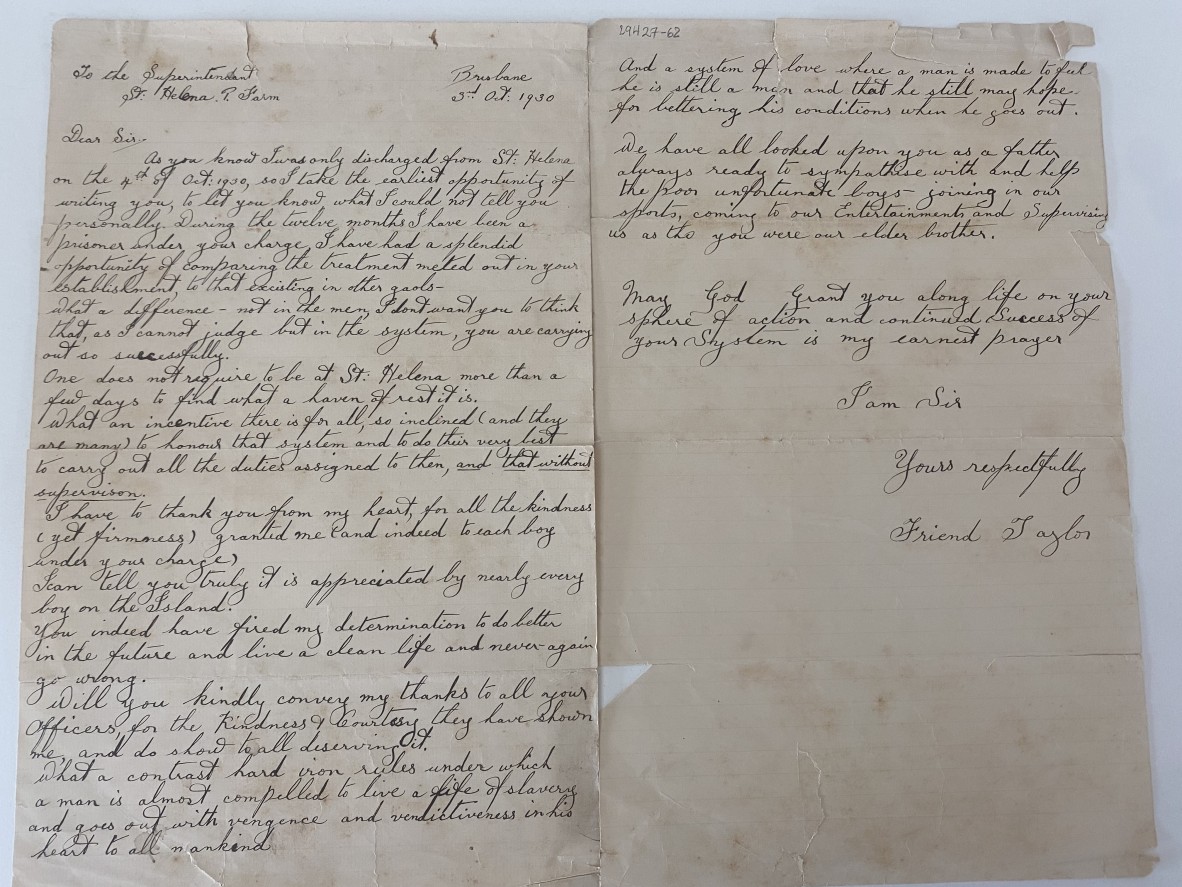 To the Superintendant
St. Helena. P. Farm
Brisbane
3rd Oct: 1930
Dear Sir,
As you know I was only discharged from St: Helena
on the 4th of Oct: 1930, so I take the earliest opportunity of
writing you, to let you know, what I could not tell you
personally. During the twelve months I have been a
prisoner under, your charge, I have had a splendid
opportunity of comparing the treatment meted out in your
establishment, to that excisting in other gaols-
What a difference - not in the men, I dont want you to think
that, as I cannot judge but in the system, you are carrying
out so successfully.
One does not require to be at St: Helena more than a
few days to find what a haven of rest it is.
What an incentive there is for all, so inclined (and they
are many) to honour that system and to do their very best
to carry out all the duties assigned to then, and that without
supervison.
I have to thank you from my heart, for all the kindness
(yet firmness) granted me (and indeed to each boy
under your charge)
I can tell you truly it is appreciated by nearly every
boy on the Island.
You indeed have fired my determination to do better
in the future and live a clean life and never-again
go wrong.
Will you kindly convey my thanks to all your
Officers, for the Kindness & Courtesy they have shown
me, and do show to all deserving it.
What a contrast hard iron rules under which
a man is almost compelled to live a life of slavery
and goes out with vengence and vendictiveness in his
heart to all mankind
29427-62
And a system of love where a man is made to feel
he is still a man and that he still may hope
for bettering his conditions when he goes out.
We have all looked upon you as a father
always ready to sympathise with and help
the poor unfortunate boys- joining in our
sports, coming to our Entertainments and Supervising
us as tho you were our elder brother.
May God Grant you along life on your
sphere of action and continued Success of
your System is my earnest prayer
I am Sir
Yours respectfully
Friend Taylor